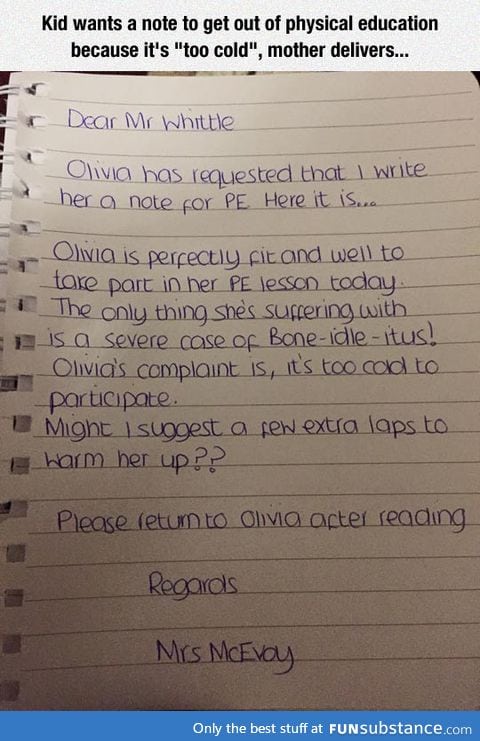 Kid wants a note to get out of physical education
because it's "too cold", mother delivers...
Dear Mr Whittle
Olivia has requested that I write
her a note for PE Here it is...
Olivia is perfectly fit and well to
take part in her PE lesson today.
The only thing she's suffering with
is a severe case of Bone-idle-itus!
Olivia's complaint is, it's too cold to
participate.
Might I suggest a few extra laps to
warm her up??
Please return to Olivia after reading
Regards
Mrs McEvoy
Only the best stuff at FUNsubstance.com